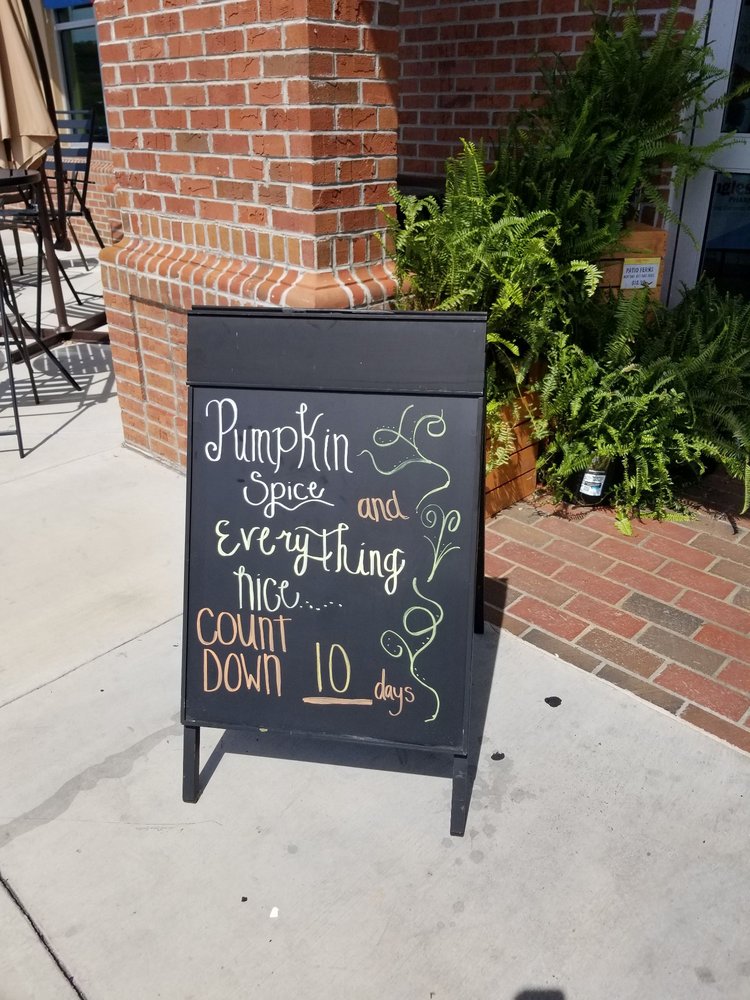 Pumpkin
Spice
and
EveryThing
nice......
COUNT
DOWN 10 days
PATIO FERNS